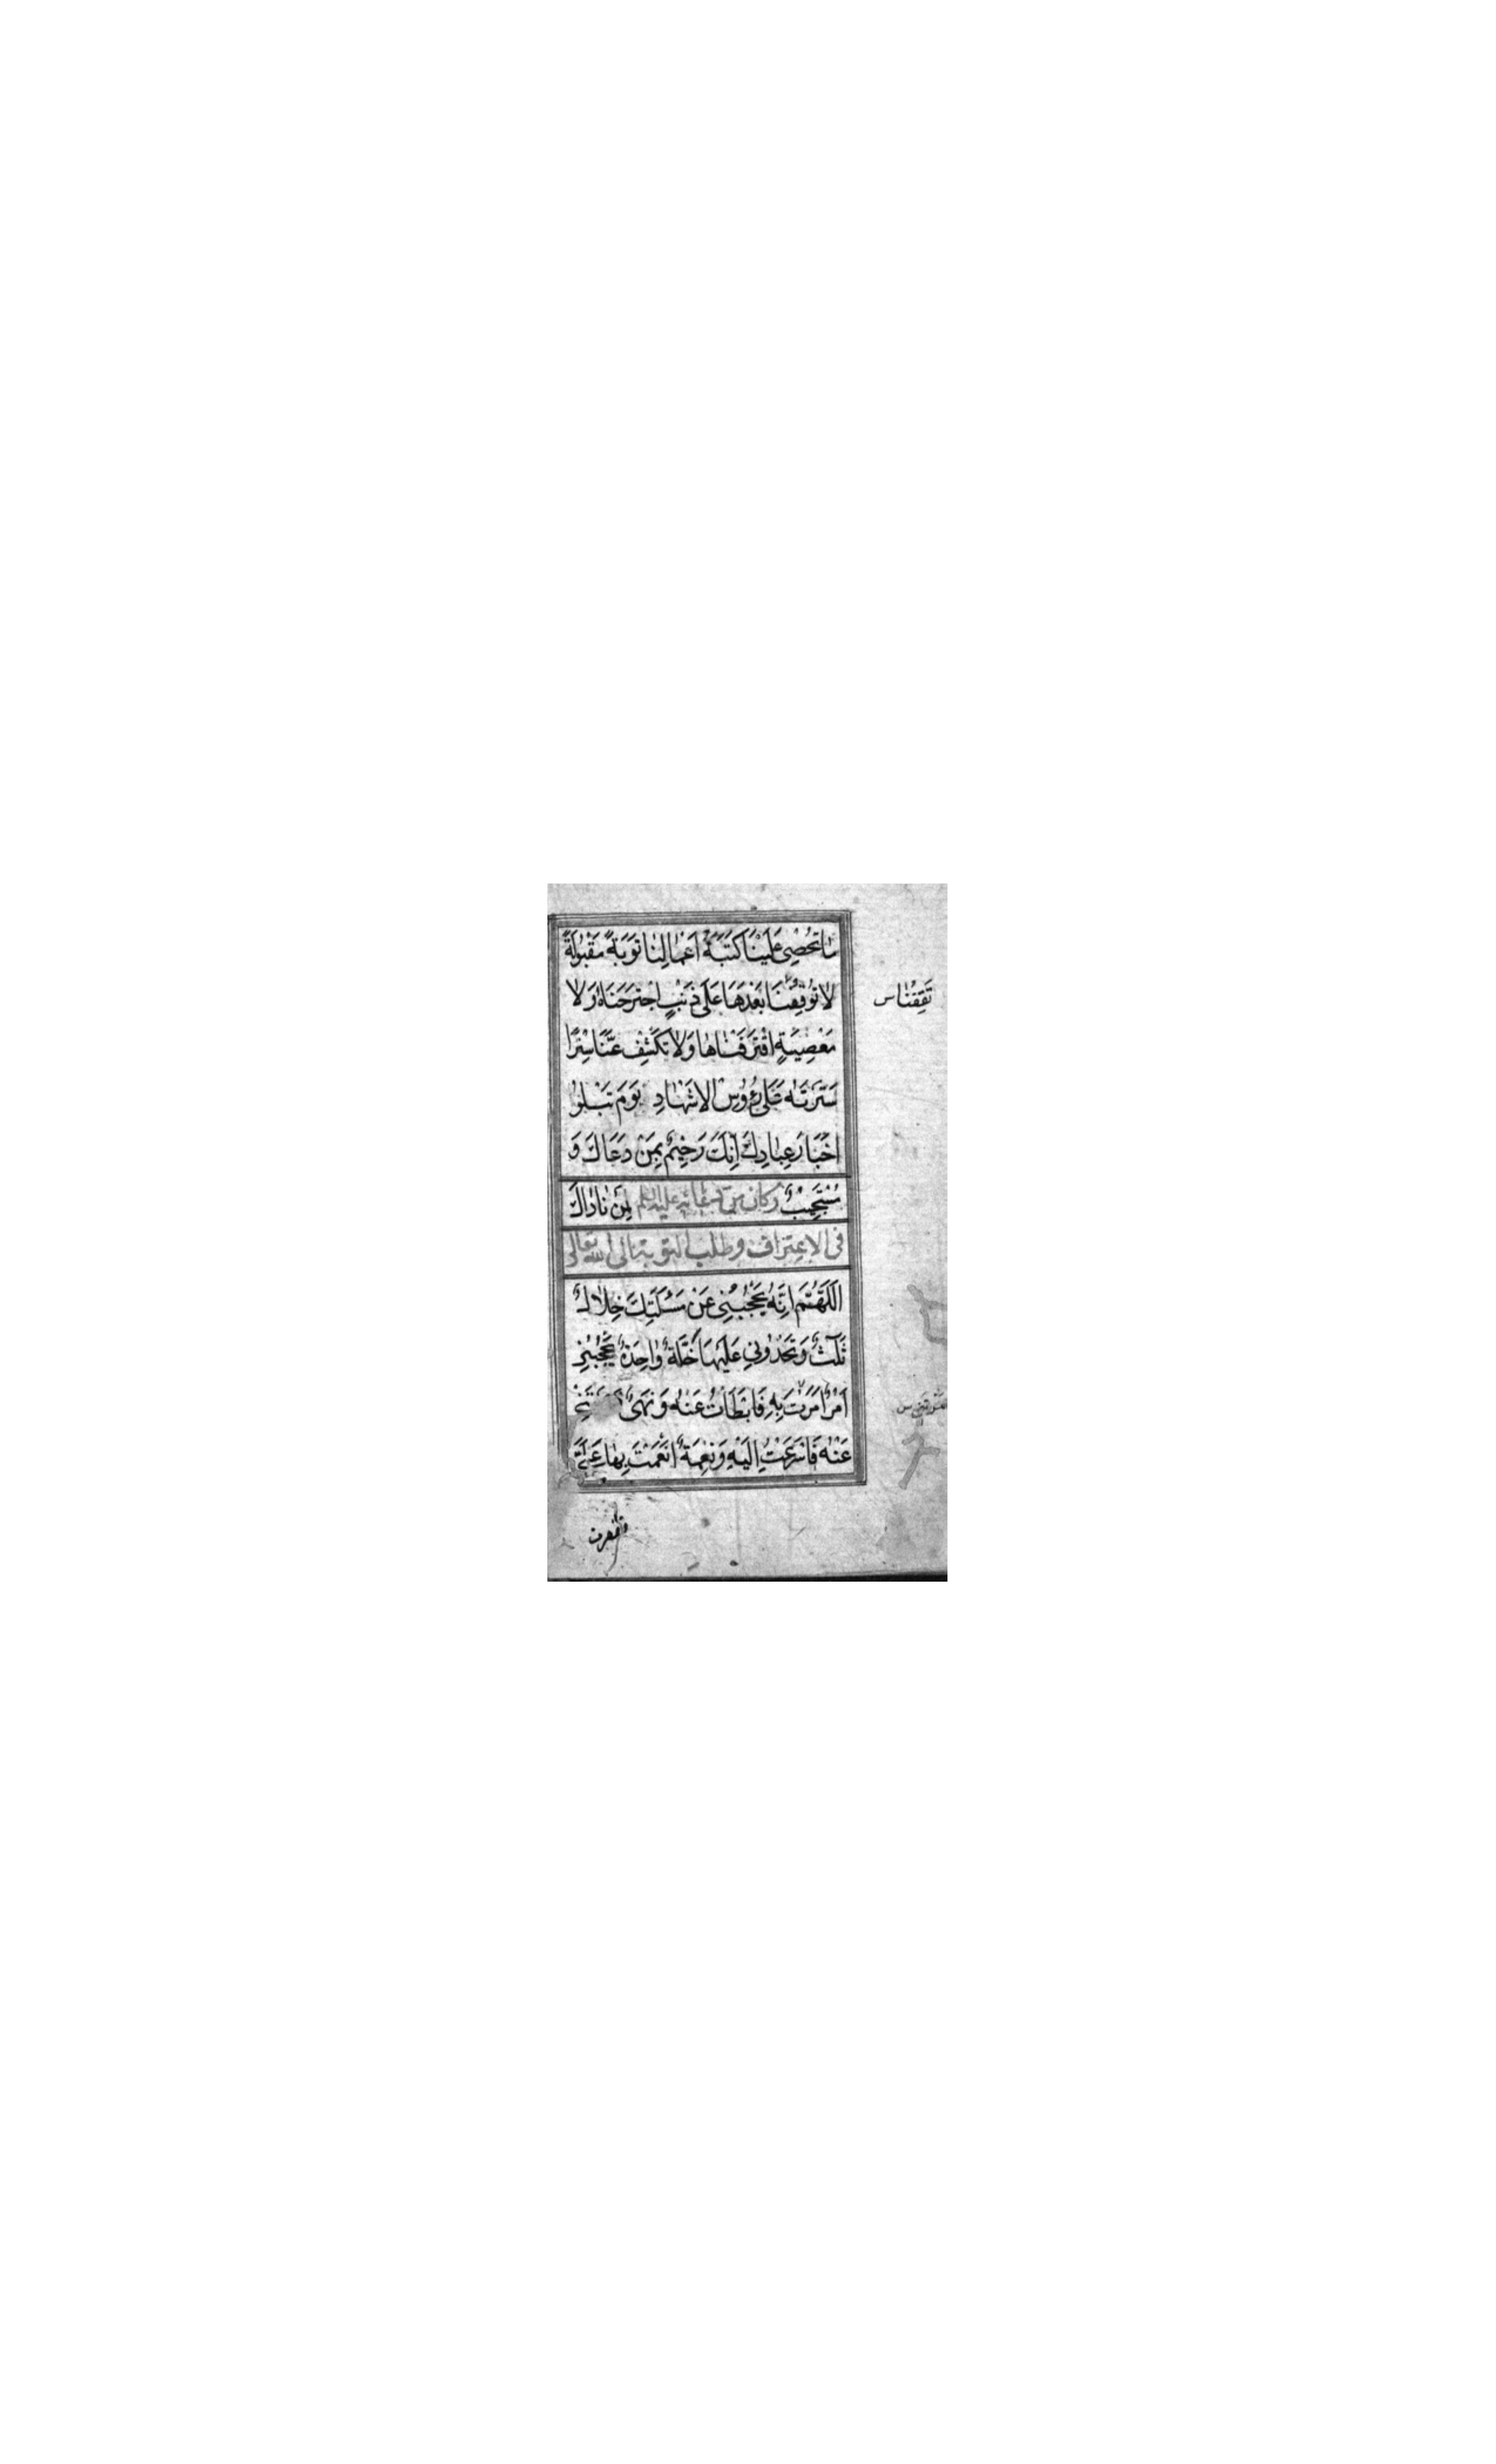 مَا تُحْصِي عَلَيْنَا كَتَبَةُ اَعْمَالِنَا تَوْبَةً مَقْبُولَةً
لَا تُوقِفُنَا بَعْدَهَا عَلَى ذَنْبٍ اجْتَرَحْنَاهُ وَلَا
مَعْصِيَةٍ اقْتَرَفْنَاهَا وَلَا تَكْشِفْ عَنَّا سِتْرًا
سَتَرْتَهُ عَلَى رُءُوسِ الْاَشْهَادِ يَوْمَ تَبْلُوا
اَخْبَارَ عِبَادِكَ اِنَّكَ رَحِيمٌ بِمَنْ دَعَاكَ وَ
مُسْتَجِيبٌ لِمَنْ نَادَاكَ وكان من دعائه عليه السلم
في الاعتراف وطلب التوبة الى الله تعالى
اَللّٰهُمَّ اِنَّهُ يَحْجُبُنِي عَنْ مَسْئَلَتِكَ خِلَالٌ
ثَلٰثٌ وَتَحْدُونِي عَلَيْهَا خَلَّةٌ وَاحِدَةٌ يَحْجُبُنِي
اَمْرٌ اَمَرْتَ بِهِ فَاَبْطَأْتُ عَنْهُ وَنَهْيٌ
عَنْهُ فَاَسْرَعْتُ اِلَيْهِ وَنِعْمَةٌ اَنْعَمْتَ بِهَا عَلَيَّ
تَقِفْنَا س